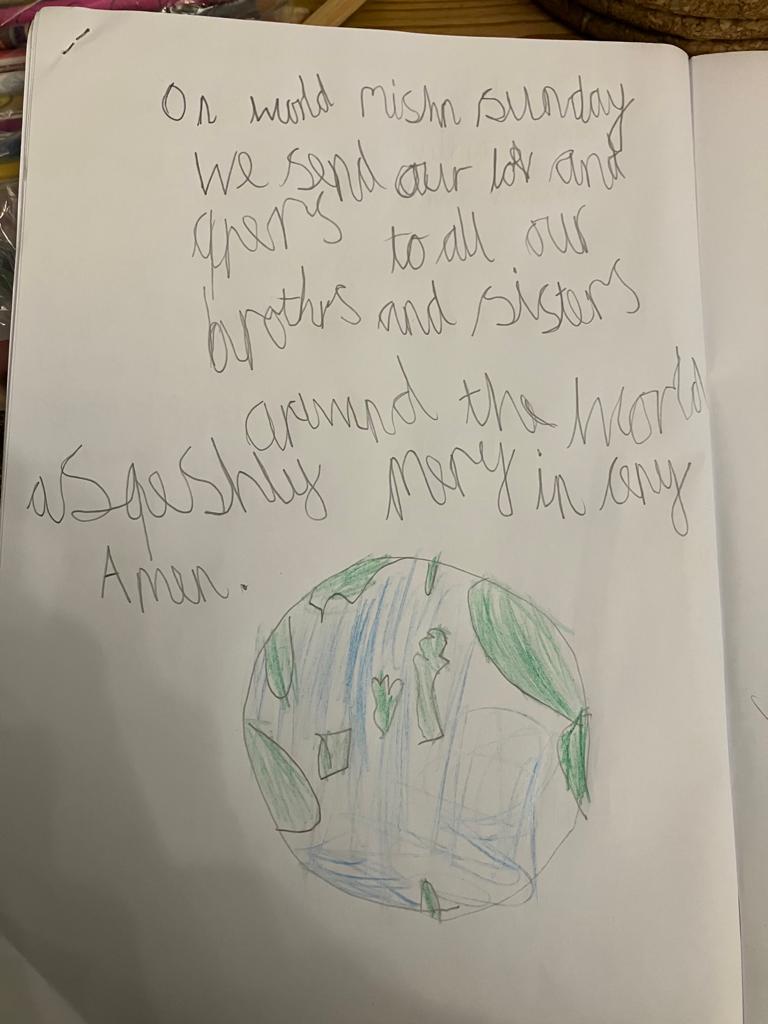 On world mishn sunday
We send our lov and
qpers to all our
brothrs and sisters
around the world
asqeshly mery in ceny
Amen.